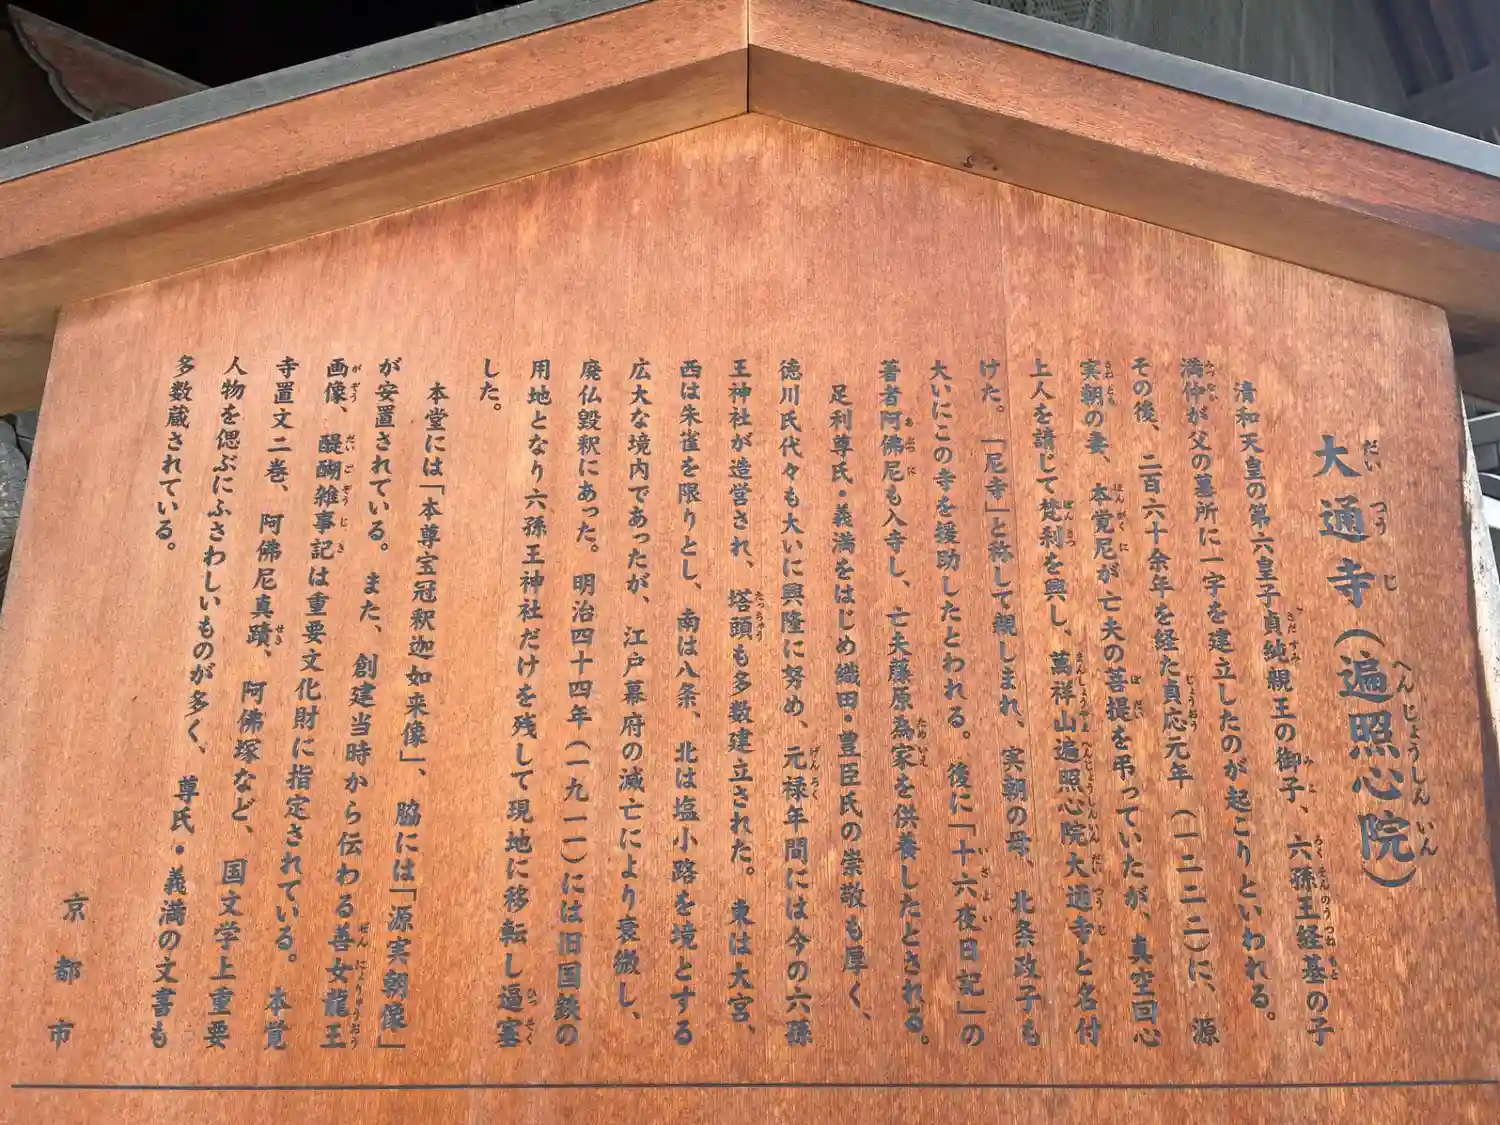 大通寺（遍照心院）
清和天皇の第六皇子貞純親王の御子、六孫王経基の子
満仲が父の墓所に一宇を建立したのが起こりといわれる。
その後、二百六十余年を経た貞応元年（一二二二）に、源
実朝の妻、本覚尼が亡夫の菩提を弔っていたが、真空回心
上人を請じて梵刹を興し、萬祥山遍照心院大通寺と名付
けた。「尼寺」と称して親しまれ、実朝の母、北条政子も
大いにこの寺を援助したとわれる。後に「十六夜日記」の
著者阿佛尼も入寺し、亡夫藤原為家を供養したとされる。
足利尊氏・義満をはじめ織田・豊臣氏の崇敬も厚く、
徳川氏代々も大いに興隆に努め、元禄年間には今の六孫
王神社が造営され、塔頭も多数建立された。東は大宮、
西は朱雀を限りとし、南は八条、北は塩小路を境とする
広大な境内であったが、江戸幕府の滅亡により衰微し、
廃仏毀釈にあった。明治四十四年（一九一一）には旧国鉄の
用地となり六孫王神社だけを残して現地に移転し逼塞
した。
本堂には「本尊宝冠釈迦如来像」、脇には「源実朝像」
が安置されている。また、創建当時から伝わる善女龍王
画像、醍醐雑事記は重要文化財に指定されている。本覚
寺置文二巻、阿佛尼真蹟、阿佛塚など、国文学上重要
人物を偲ぶにふさわしいものが多く、尊氏・義満の文書も
多数蔵されている。
京都市